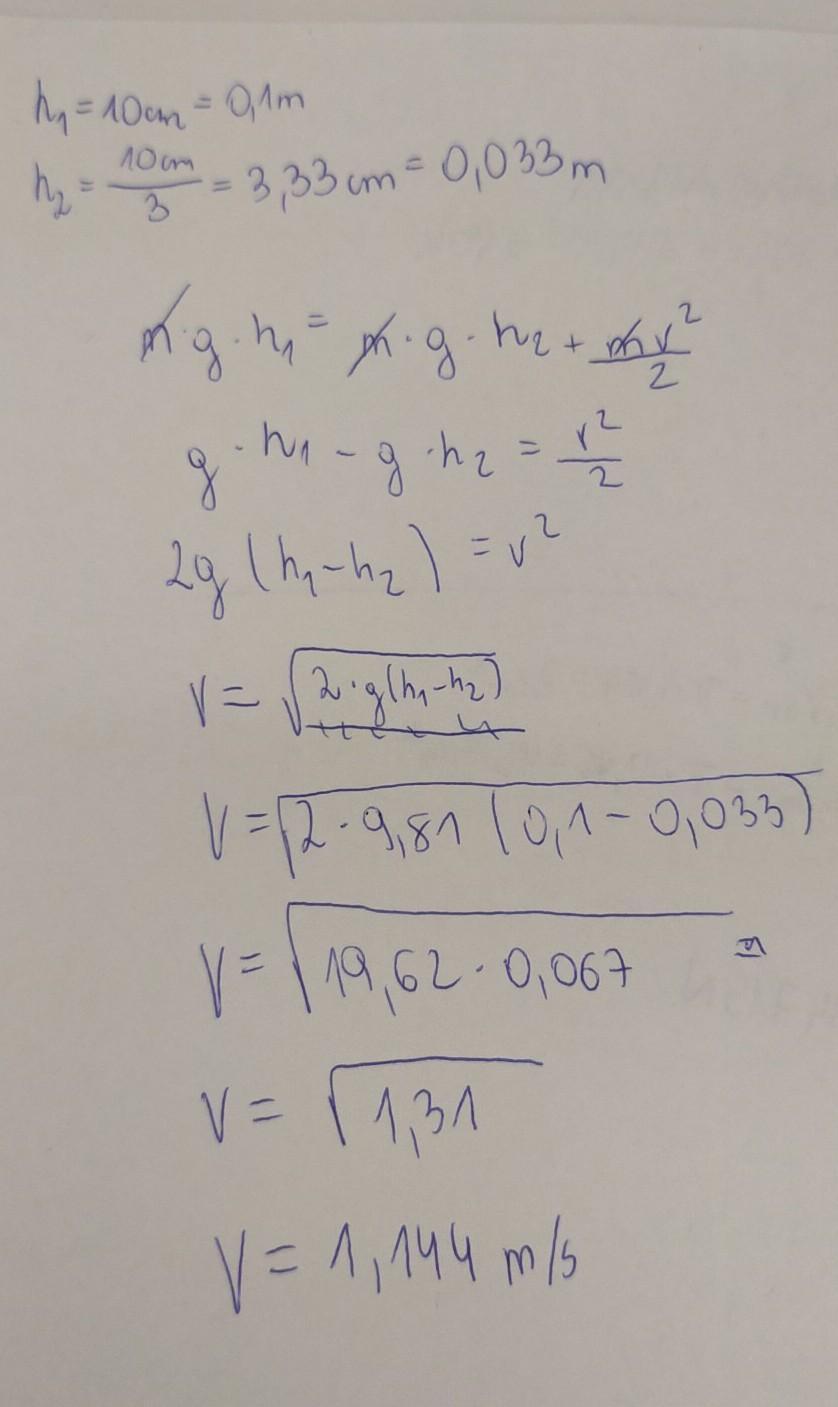 h₁ = 10cm = 0,1m
h₂ = 10cm/3 = 3,33cm = 0,033m
m·g·h₁ = m·g·h₂ + mv²/2
g·h₁ - g·h₂ = v²/2
2g(h₁-h₂) = v²
V = √(2·g(h₁-h₂))
V = √(2·9,81(0,1-0,033))
V = √(19,62·0,067) =
V = √(1,31)
V = 1,144 m/s